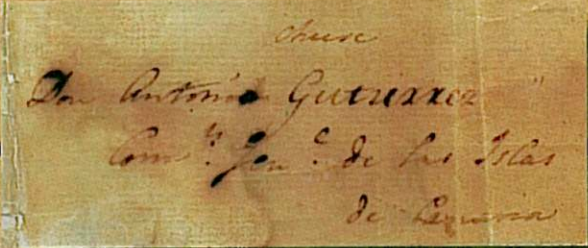 Don Antonio Gutierrez
Com.y Gen.l de las Islas
de Canaria